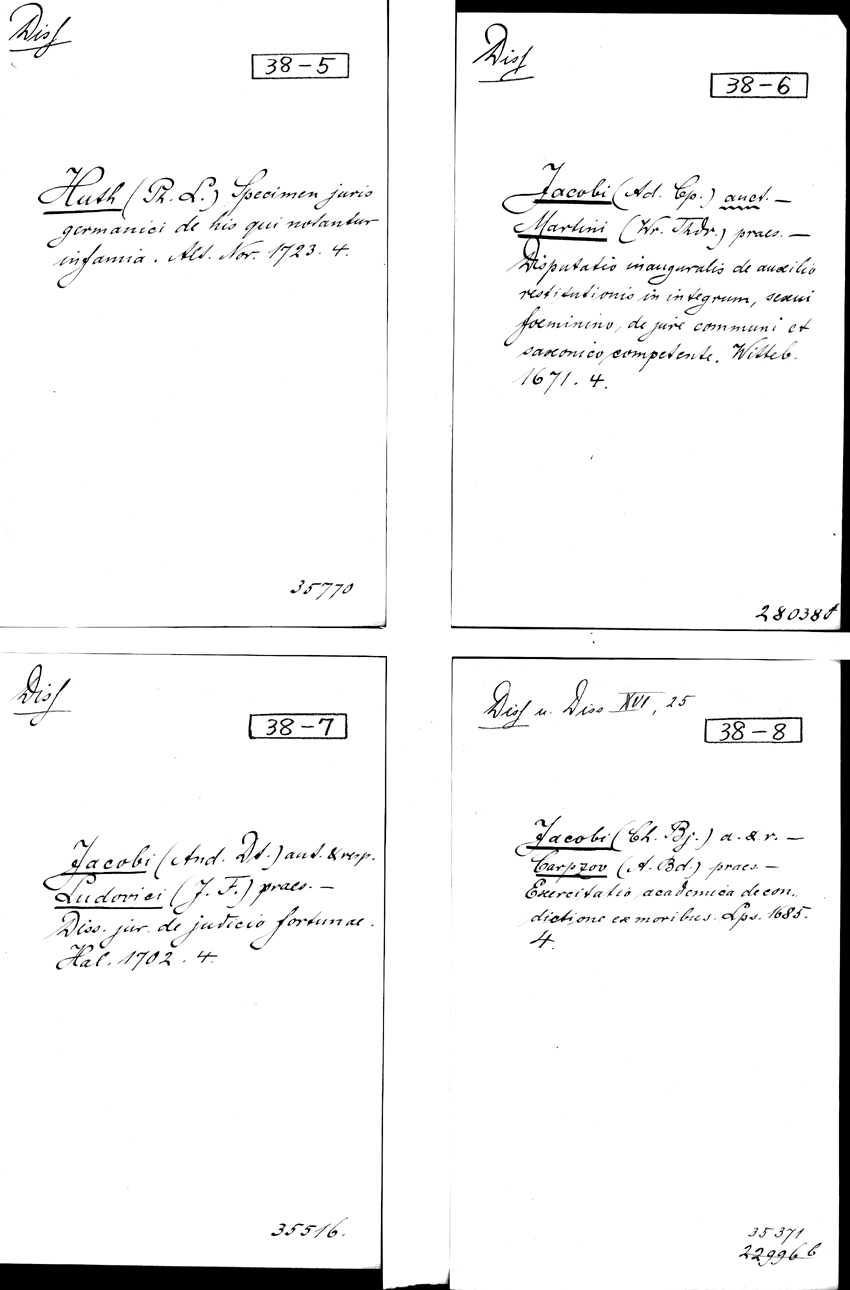 Diss
38-5
Huth (Ph. L.) Specimen juris
germanici de his qui notantur
infamia. Alt. Nor. 1723. 4.
35770
Diss
38-6
Jacobi (Ad. Cp.) auct. —
Martini (Wr. Thdr.) praes. —
Disputatio inauguralis de auxilio
restitutionis in integrum, sexui
foeminino, de jure communi et
saxonico, competente. Witteb.
1671. 4.
28038
Diss
38-7
Jacobi (And. Dt.) aut. & resp.
Ludovici (J. F.) praes. —
Diss. jur. de judicio fortunae.
Hal. 1702. 4.
35516.
Diss u. Diss XVI, 25
38-8
Jacobi (Ch. Bj.) a. & r. —
Carpzov (A. Bd.) praes. —
Exercitatio academica de con.
dictione ex moribus. Lps. 1685.
4.
35371
22996 b